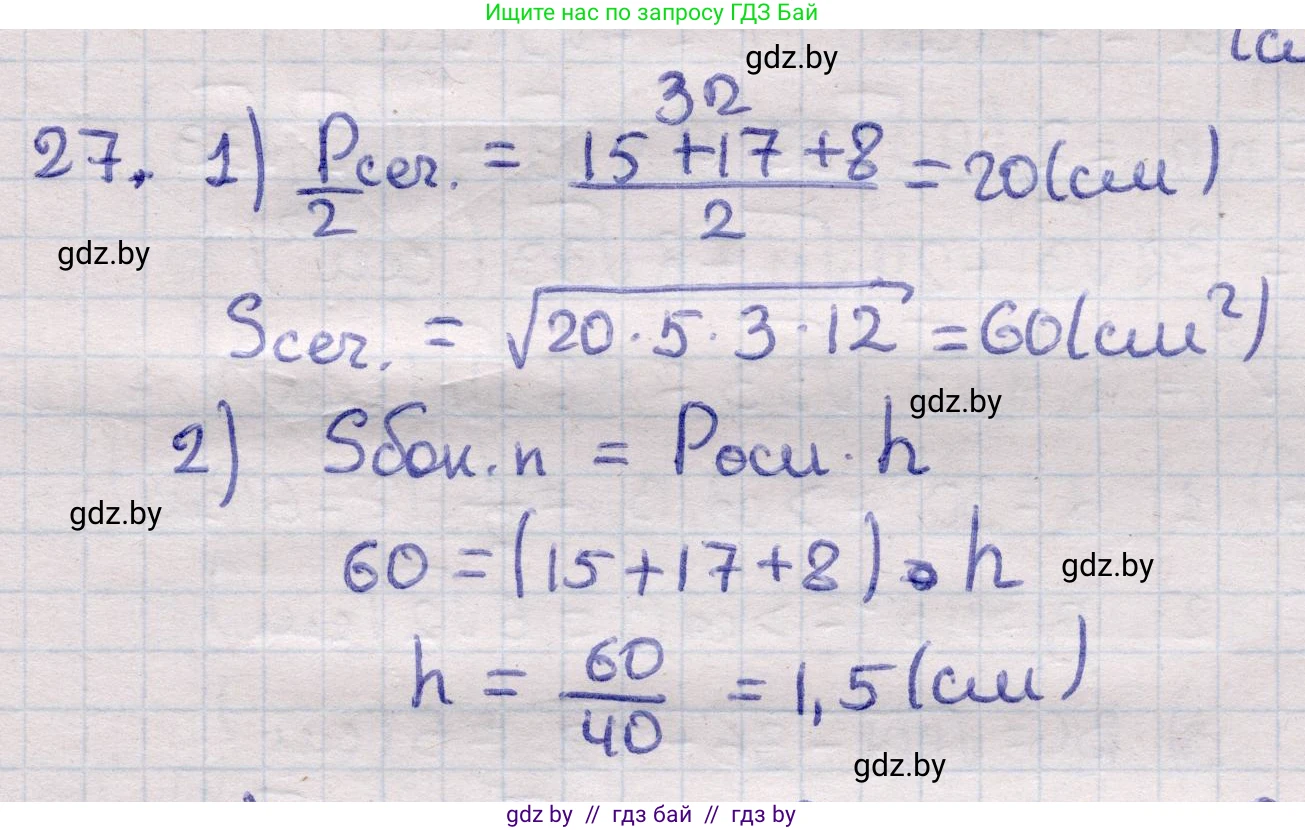 Ищите нас по запросу ГДЗ Бай
gdz.by
32
27. 1) Pсеч./2 = (15+17+8)/2 = 20(см)
gdz.by
Sсеч. = √20·5·3·12 = 60(см²)
gdz.by
2) Sбок.п = Pосн·h
gdz.by
60 = (15+17+8)·h
gdz.by
h = 60/40 = 1,5(см)
gdz.by
gdz.by // гдз бай // гдз by